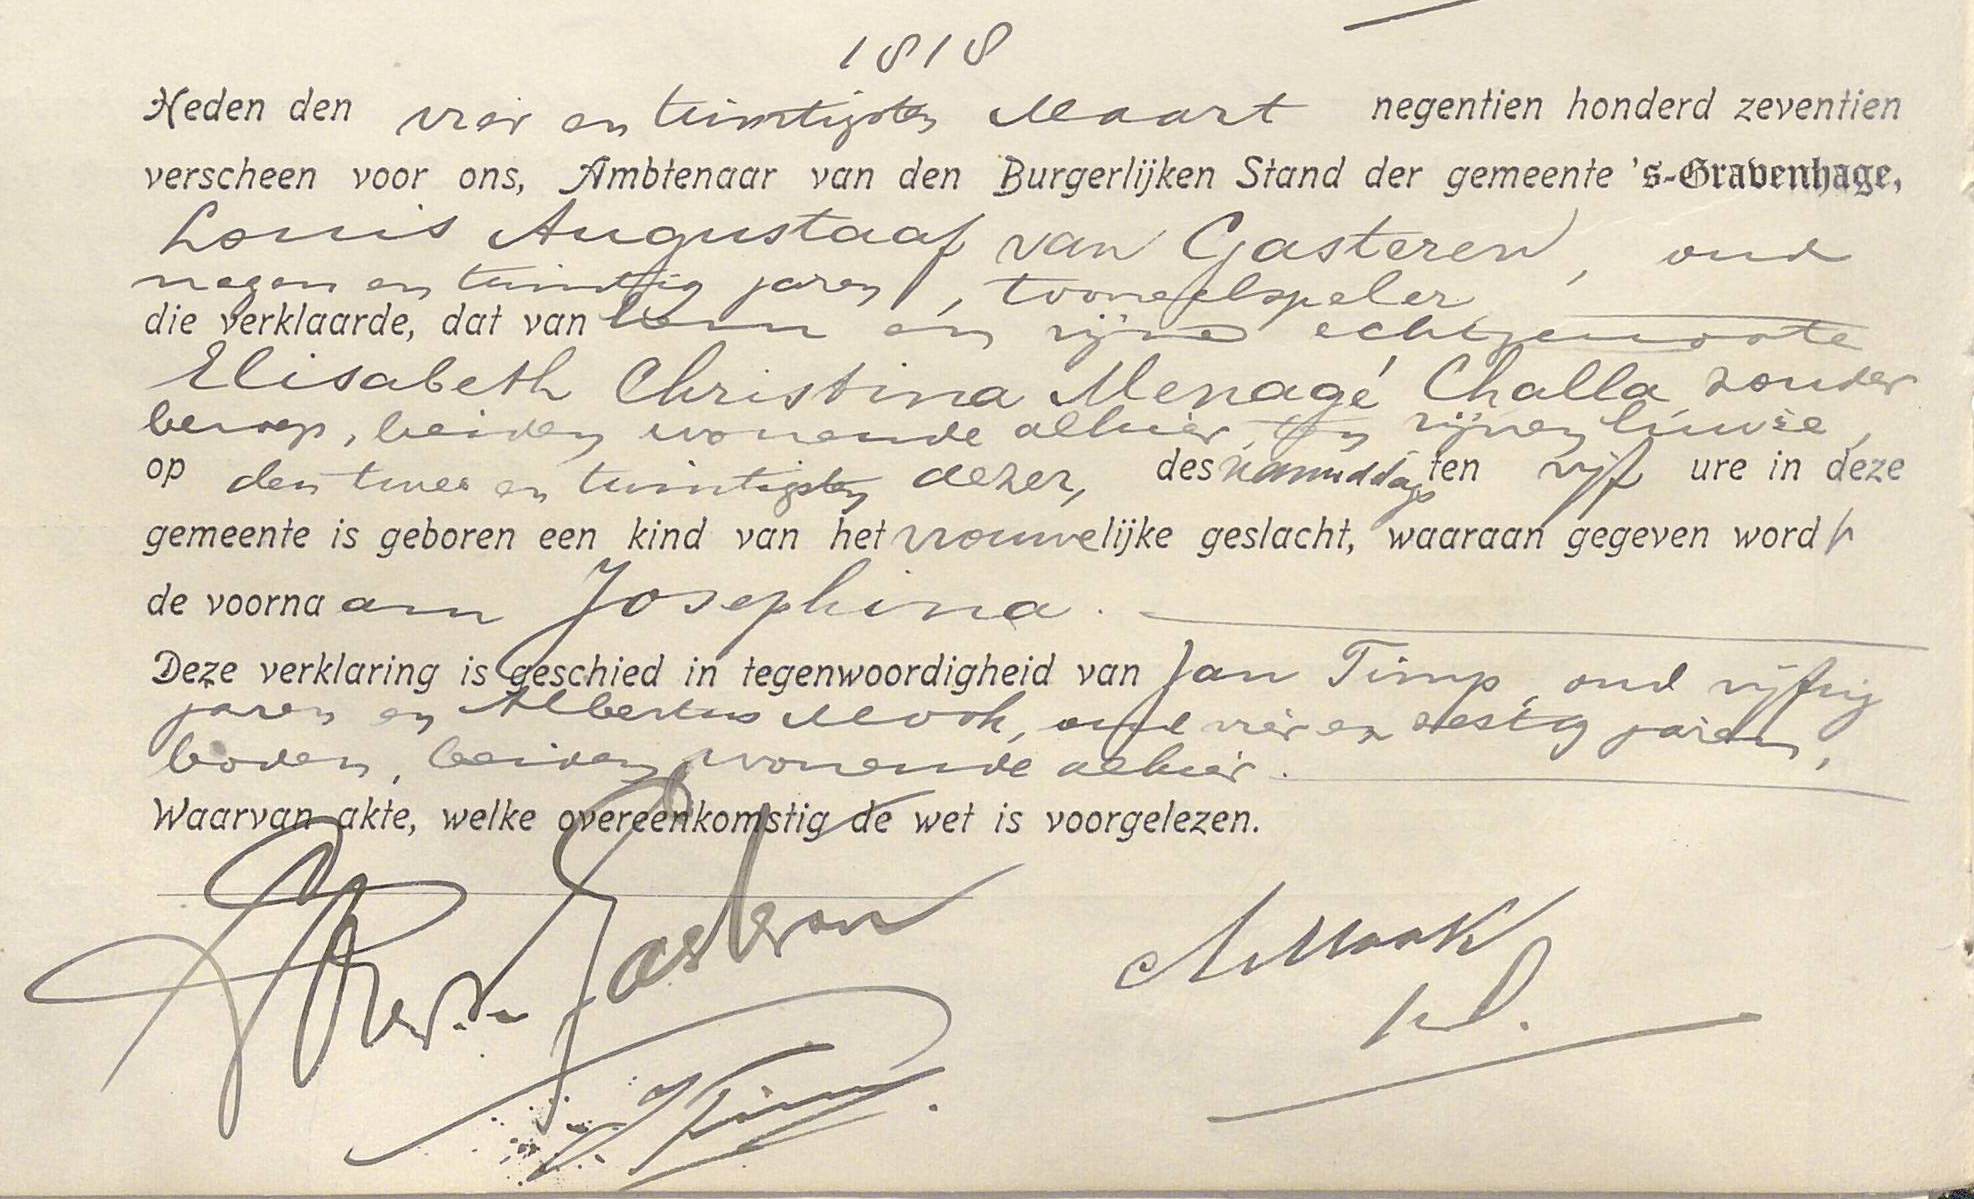 1818
Heden den vier en twintigsten Maart negentien honderd zeventien
verscheen voor ons, Ambtenaar van den Burgerlijken Stand der gemeente 's-Gravenhage,
Louis Augustaaf van Gasteren, oud
negen en twintig jaren, tooneelspeler
die verklaarde, dat van hem en zijne echtgenoote
Elisabeth Christina Menagé Challa, zonder
beroep, beiden wonende alhier, ten zijnen huize,
op den twee en twintigsten dezer, des namiddags ten vijf ure in deze
gemeente is geboren een kind van het vrouwelijke geslacht, waaraan gegeven wordt
de voornaam Josephina.
Deze verklaring is geschied in tegenwoordigheid van Jan Timp, oud vijftig
jaren en Albertus Mook, oud vier en zestig jaren,
boden, beiden wonende alhier.
Waarvan akte, welke overeenkomstig de wet is voorgelezen.
van Gasteren
A Mook
J Timp